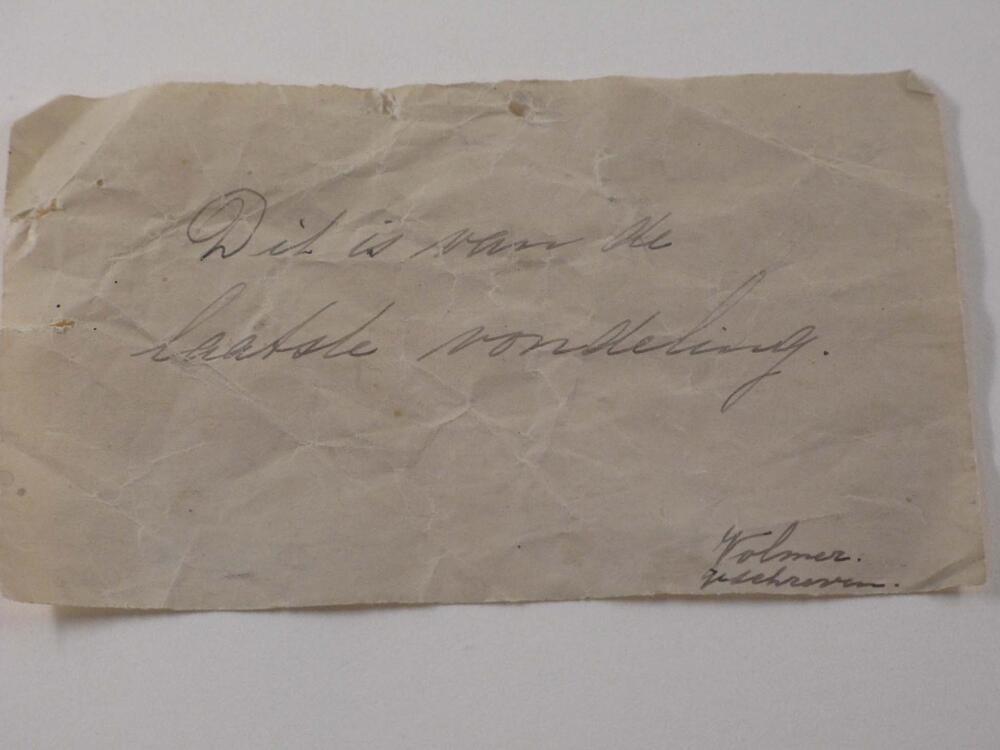 Dit is van de
laatste vondeling.
Volmer.
geschreven.